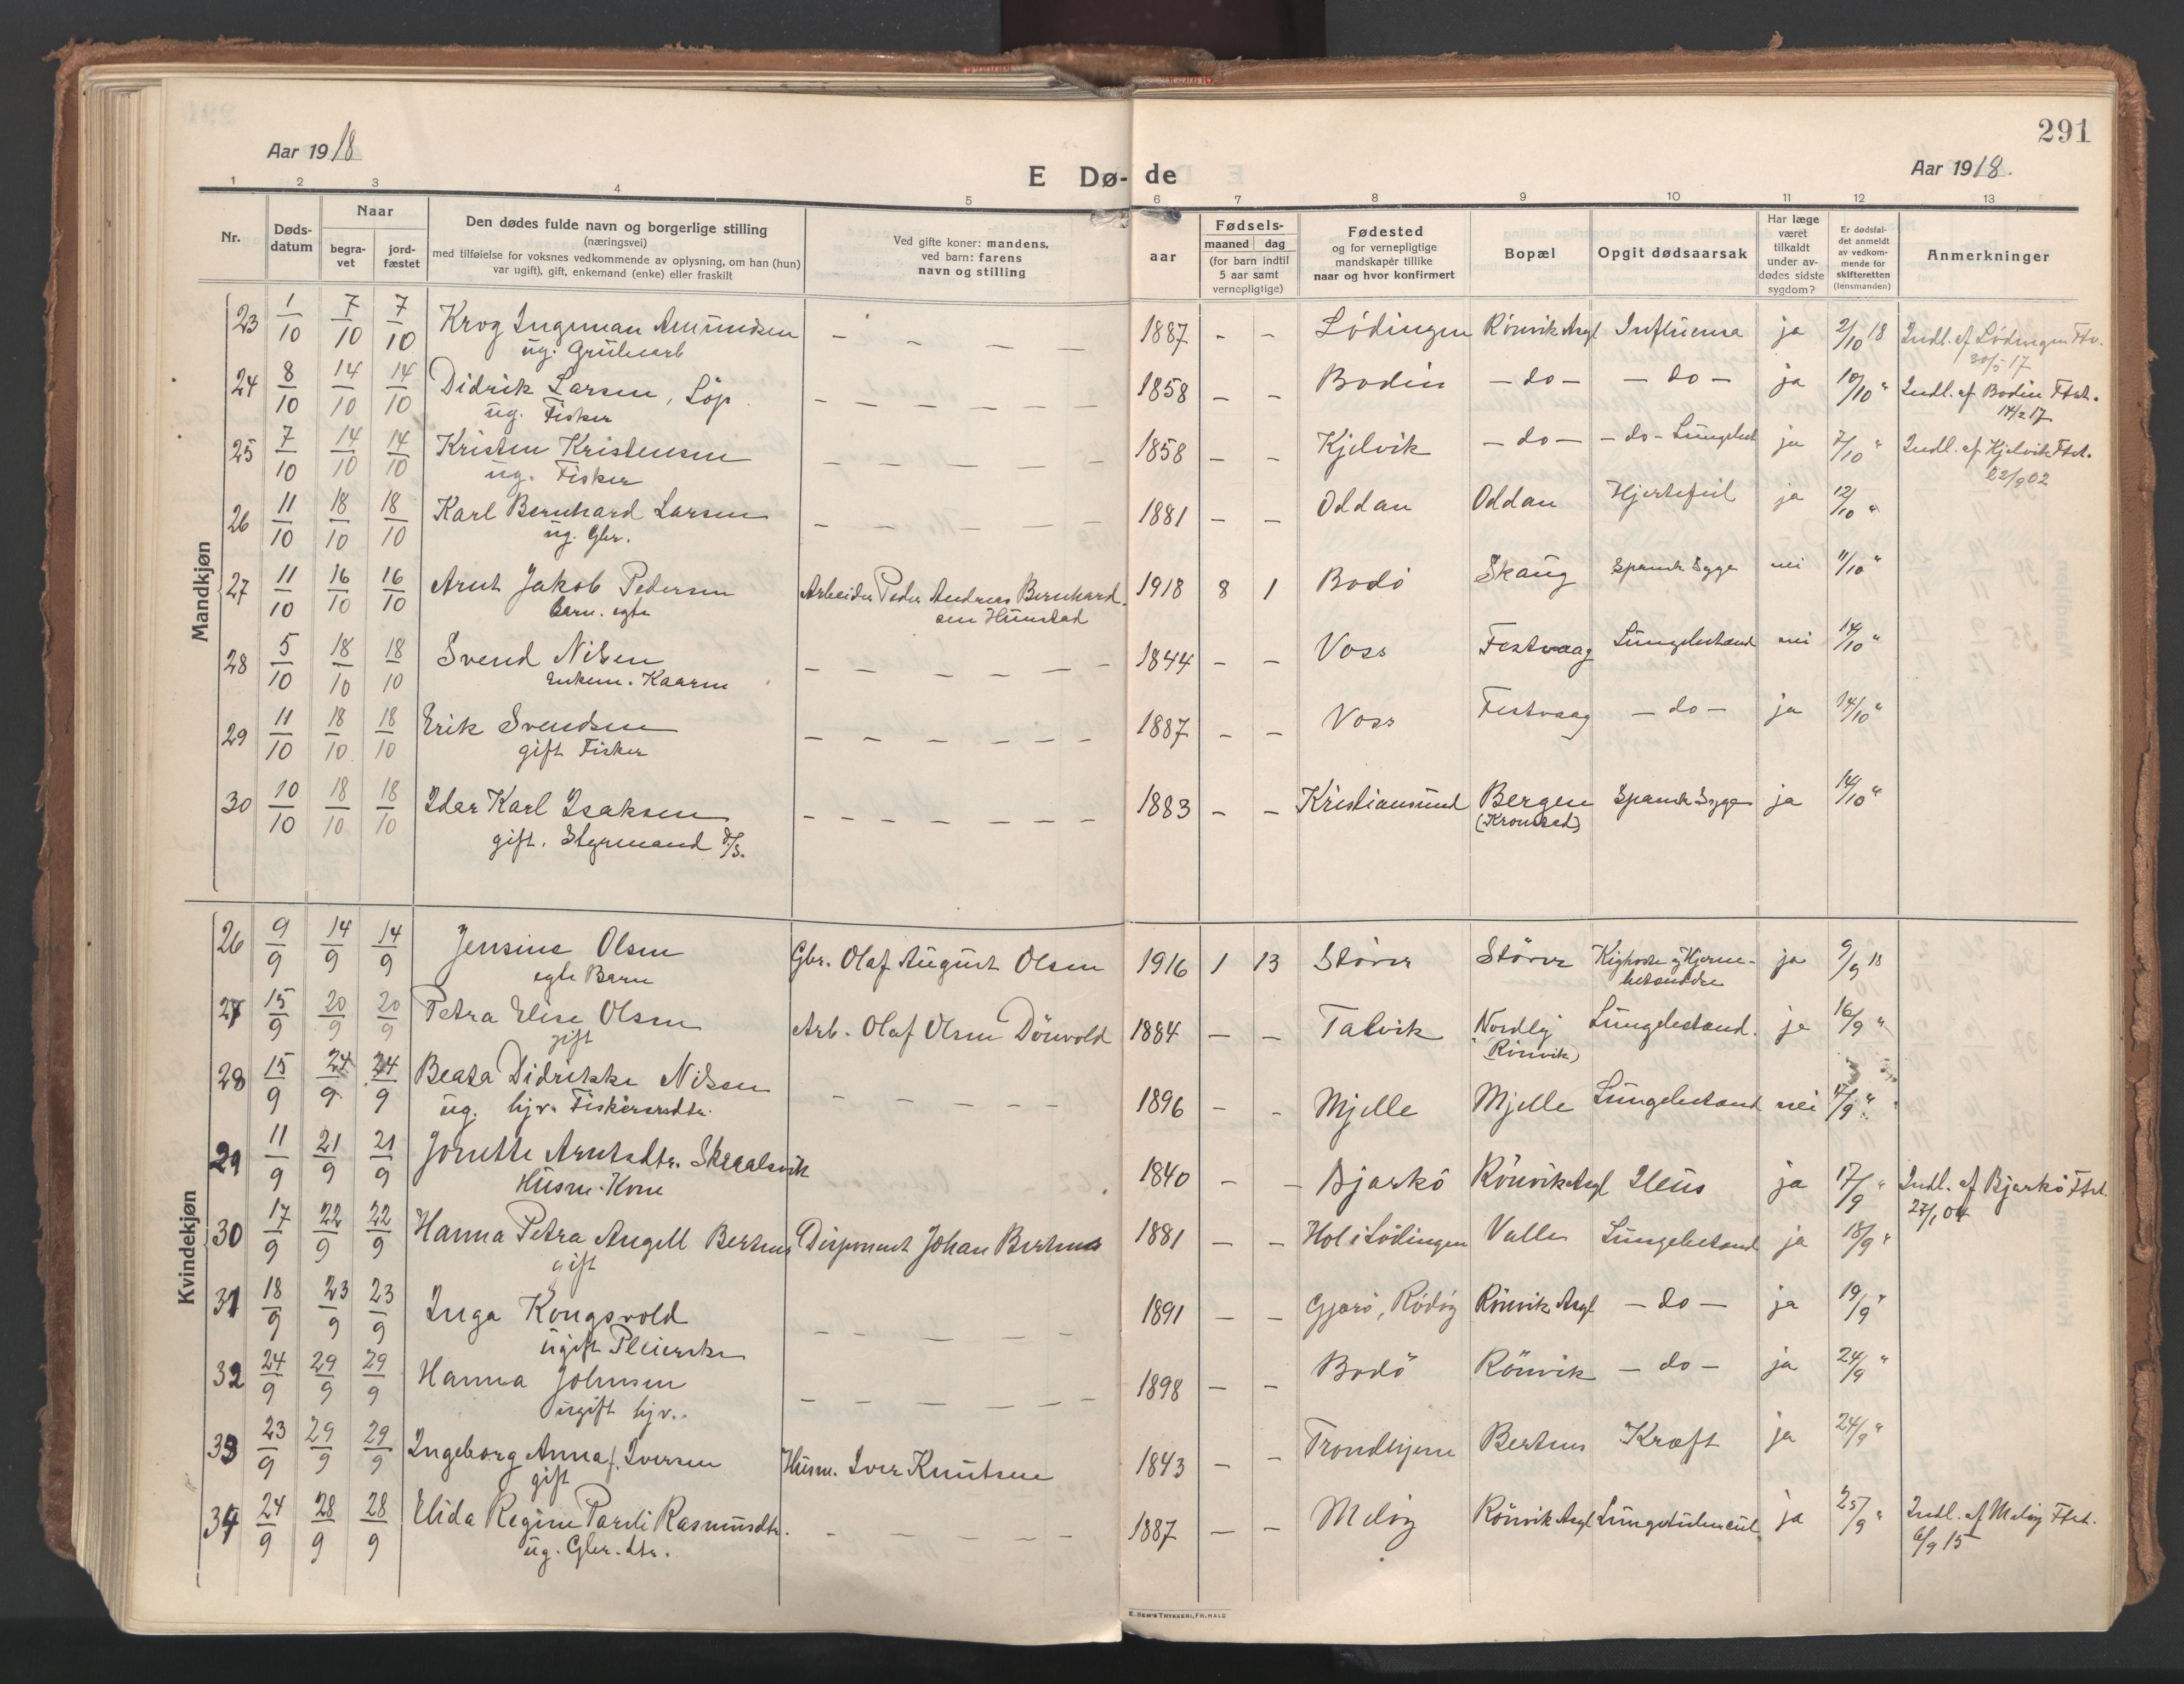 291
Aar 1918
E Dø- de
Aar 1918.
1 2 3 4 5 6 7 8 9 10 11 12 13
Nr.
Døds-
datum
Naar
begra-
vet
jord-
fæstet
Den dødes fulde navn og borgerlige stilling
(næringsvei)
med tilføielse for voksnes vedkommende av oplysning, om han (hun)
var ugift), gift, enkemand (enke) eller fraskilt
Ved gifte koner: mandens,
ved barn: farens
navn og stilling
Fødsels-
aar
maaned dag
(for barn indtil
5 aar samt
vernepligtige)
Fødested
og for vernepligtige
mandskaper tillike
naar og hvor konfirmert
Bopæl
Opgit dødsaarsak
Har læge
været
tilkaldt
under av-
dødes sidste
sygdom?
Er dødsfal-
det anmeldt
av vedkom-
mende for
skifteretten
(lensmanden)
Anmerkninger
Mandkjøn
23 1/10 7/10 7/10 Krog Ingeman Amundsen – – – – 1887 – – Lödingen Rönvik Asyl Influensa ja 2/10 18 Indl. af Lödingen Ftv.
ug. Grubearb 30/5 17
24 8/10 14/10 14/10 Didrik Larsen, Löp – – – – – – 1858 – – Bodin – do – – do – ja 10/10 " Indl. af Bodin Ftst.
ug. Fisker 14/2 17
25 7/10 14/10 14/10 Kristen Kristensen – – – – – – 1858 – – Kjelvik – do – – do – Lungebet ja 7/10 " Indl. af Kjelvik Ftst.
ug. Fisker 22/9 02
26 11/10 18/10 18/10 Karl Bernhard Larsen – – – – – 1881 – – Oddan Oddan Hjertefeil ja 12/10 "
ug. Gbr.
27 11/10 16/10 16/10 Arnt Jakob Pedersen Arbeider Peder Andreas Bernhard- 1918 8 1 Bodö Skaug Spansk Syge nei 11/10 "
barn. egte sen Hunstad
28 5/10 18/10 18/10 Svend Nilsen – – – – – – 1844 – – Voss Festvaag Lungebetænd nei 14/10 "
Enkem. Kaarm
29 11/10 18/10 18/10 Erik Svendsen – – – – – – 1887 – – Voss Festvaag – do – ja 14/10 "
gift Fisker
30 10/10 18/10 18/10 Idar Karl Isaksen – – – – – – – 1883 – – Kristiansund Bergen Spansk Syge ja 14/10 "
gift. Styrmand D/S. (Kronstad)
Kvindekjøn
26 9/9 14/9 14/9 Jensine Olsen Gbr. Olaf August Olsen 1916 1 13 Störer Störer Kighoste og Hjerne- ja 9/9 18
egte Barn betændelse
27 15/9 20/9 20/9 Petra Elise Olsen Arb. Olaf Olsen Dönvold 1884 – – Talvik Nordly Lungebetænd. ja 16/9 "
gift (Rönvik)
28 15/9 24/9 24/9 Beata Didrikke Nilsen – – – – – 1896 – – Mjelle Mjelle Lungebetænd nei 17/9 "
ug. hjv. Fiskersdtr.
29 11/9 21/9 21/9 Jonette Arntsdtr. Skraalsvik 1840 – – Bjarkö Rönvik Asyl Ileus ja 17/9 " Indl. af Bjarkö Ftst.
Husm. Kone 27/1 04
30 17/9 22/9 22/9 Hanna Petra Angell Bertnes Disponent Johan Bertnes 1881 – – Hol i Lödingen Valle Lungebetænd ja 18/9 "
gift
31 18/9 23/9 23/9 Inga Kongsvold – – – – – 1891 – – Gjerö, Rödöy Rönvik Asyl – do – ja 19/9 "
ugift Pleierske
32 24/9 29/9 29/9 Hanna Johnsen – – – – – – 1898 – – Bodö Rönvik – do – ja 24/9 "
ugift hjv.
33 23/9 29/9 29/9 Ingeborg Anna f. Iversen Husm. Iver Knutsen 1843 – – Trondhjem Bertnes Kræft ja 24/9 "
gift
34 24/9 28/9 28/9 Elida Regine Pareli Rasmusdtr. – – – – 1887 – – Melöy Rönvik Asyl Lungetubercul ja 25/9 " Indl. af Melöy Ftst.
ug. Gbr. dtr. 6/9 15
E. SEM'S TRYKKERI, FR.HALD